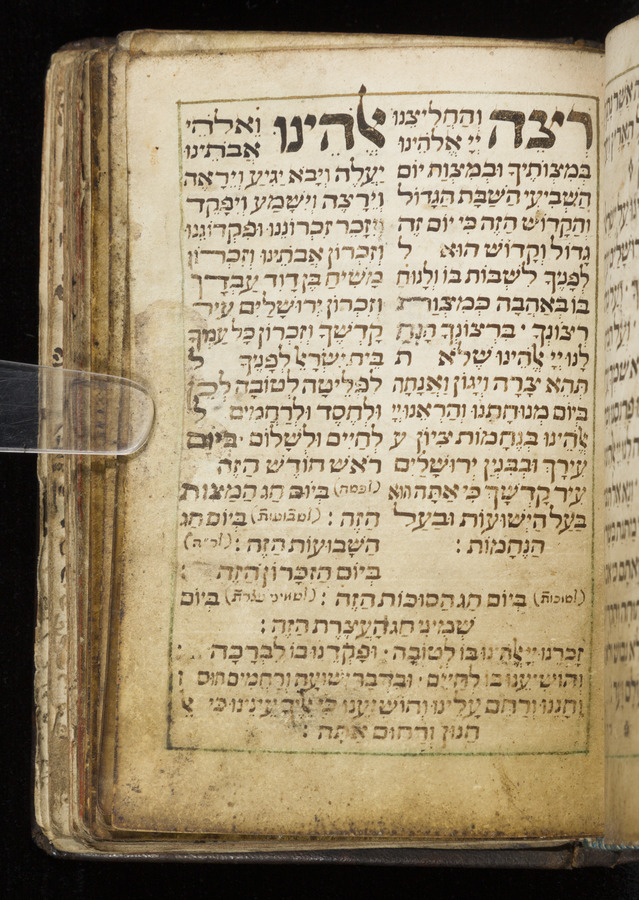 ריצה והחליצנו
יי אלהינו
במיצותיך ובמיצות יום
השביעי השבת הגדול
והקדוש הזה כי יום זה
גדול וקדוש הוא ל
לפניך לשבות בו ולנוח
בו באהבה כמיצות
ריצונך · ברצונך הנח
לנו יי אלהינו שלא ת
תהא צרה ויגון ואנחה
ביום מנוחתנו והראנו יי
אלהינו בנחמות ציון ע
עירך ובבנין ירושלים
עיר קדשך כי אתה הוא
בעל הישועות ובעל
הנחמות :
אלהינו ואלהי
אבותינו
יעלה ויבא יגיע ויראה
וירצה וישמע ויפקד
ויזכר זכרוננו ופקדוננו
וזכרון אבתינו וזכרון
משיח בן דוד עבדך
וזכרון ירושלים עיר
קדשך וזכרון כל עמך
בית ישראל לפניך ל
לפליטה לטובה לחן
ולחסד ולרחמים ל
לחיים ולשלום · ביום
ראש חודש הזה
(לפסח) ביום חג המצות
הזה : (לשבועות) ביום חג
השבועות הזה : (לר״ה)
ביום הזכרון הזה :
(לסוכות) ביום חג הסוכות הזה : (לשמיני עצרת) ביום
שמיני חג העצרת הזה :
זכרנו יי אלהינו בו לטובה · ופקדנו בו לברכה :
והושיענו בו לחיים · ובדבר ישועה ורחמים חוס ו
וחננו ורחם עלינו והושיענו כי אליך עינינו כי א
חנון ורחום אתה :